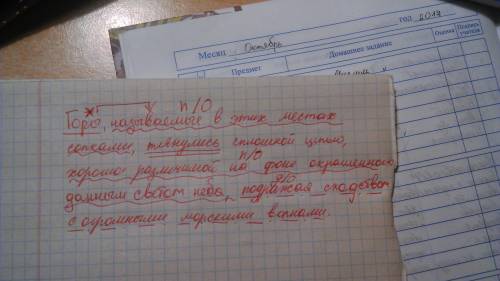 год 2017
Месяц Октябрь
Предмет
Домашнее задание
Оценка
Подпись учителя
х
п/о
Горы, называемые в этих местах
сопками, тянулись сплошной цепью,
п/о
хорошо различимой на фоне окрашенного
д/о
данным светом неба, поражая сходством
с огромными морскими волнами.